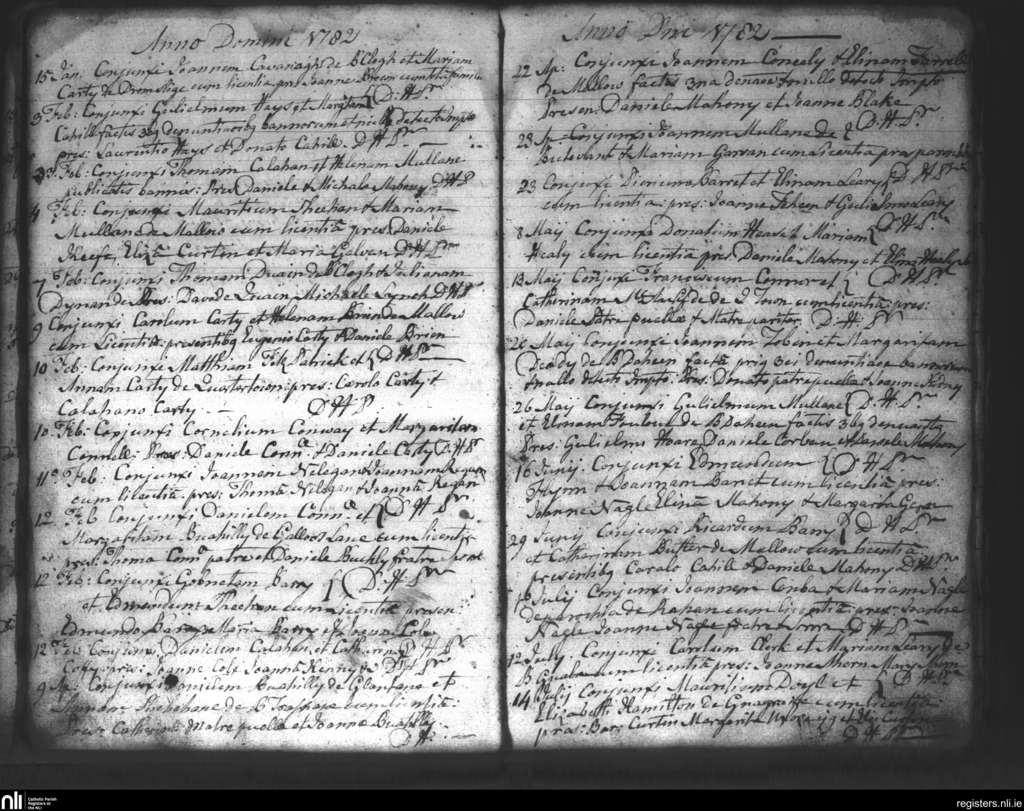 Anno Domini 1782
15 Jan. Conjunxi Joannem Cavanagh de BClogh et Mariam
Carty de Dromsligo cum licentia pres Joanne
3 Feb: Conjunxi Gulielmum Hays et Margitam D: H: Sr
Cahill factis 3bq denuntiaoibq bannorum et nullo detecto Impto
pres: Laurentio Hays et Donato Cahill. D H Sr
3d. Feb: Conjunxi Thomam Calahan et Helenam Mullane
publicatis bannis: Pres Daniele & Michale Mahony D H S
4 Feb: Conjunxi Mauritium Sheehan & Mariam
Mullan de Mallow cum licentiâ pres Daniele
Keefe, Eliza Curtin et Maria Galwen D H Sr
7 Feb: Conjunxi Thomam Dwaen de BClogh & Julianam
Dynan de Pres: Davide Michaele Lynch D H S
9 Conjunxi Carolum Carty et Helenam Brien de Mallow
cum Licentiâ: presentibq Eugenio Carty & Daniele Brien
10 Feb: Conjunxi Matthiam Fitz Patrick et D H Sr
Annam Carty de Quartertown: pres: Carolo Carty &
Calahano Carty. D H S
10 Feb: Conjunxi Cornelium Conway et Margaritam
Connell: Pres: Daniele Conn: & Daniele Carty D H Sr
11o Feb: Conjunxi Joannem Nelegan & Joannam Regan
cum licentiâ pres: Thoma Nelegan & Joanna Regan
12 Feb Conjunxi Danielem Conn. et D H Sr
Margaritam Buckilly de Gallows Lane cum licentiâ
pres: Thoma Conn: patre et Daniele Buckly fratre
12 Feb: Conjunxi Gobnetam Barry D. H Sr
et Edmundum Sheehan cum licentiâ presen:
Edmundo Barry & Maria Barry et Joanne Cole
12 Feb Conjunxi Danielem Calahan et Catharinam D H Sr
pres: Jeanne Cole Joanna Kenny D H Sr
9 Ap: Conjunxi Danielem Buckilly de Glantane et
Sheehane de cum licentiâ:
Pres: Catherina Matre puellae et Joanne Buckilly
D H:
Anno Dni 1782
22 Ap: Conjunxi Joannem Coneely & Elinam Farrell
de Mallow factis 3na denao & nullo detecto Impto
Presen: Daniele Mahony et Joanne Blake
23 Ap Conjunxi Joannem Mullane de D. H Sr
Butevant & Mariam Garvan cum licentia pres
23 Conjunxi Dionium Barret et Elinam Leary D H Sr
cum licentia: pres: Joanne Feheen & Gulielmo Leary
8 Maij Conjunxi Donatum Hease & Mariam D H Sr
Healy cum licentiâ pres Daniele Mahony et
13 Maij Conjunxi Franciscum Connor et D H Sr
Catherinam McAuly de de J Town cum licentiâ: pres:
Daniele Patre puellae & Matre pariter. D: H: Sr
26 Maij Conjunxi Joannem Tobin et Margaritam
Deady de BDaheen factis priq 3bq denuntiaoe bannorum
& nullo detecto Impto. Pres: Donato patre puellae & Joanne
26 Maij Conjunxi Gulielmum Mullane D. H. Sr
et Elinam Foulue de BDaheen factis 3bq
Pres: Gulielmo Hoare, Daniele Corbau & Daniele Mahony
16 Junij. Conjunxi Edmundum D. H. Sr
Flynn & Joannam Barret cum licentiâ pres:
Johanne Nagle Elina Mahony & Margarita
29 Junij Conjunxi Ricardum Barry D H Sr
et Catharinam Butler de Mallow cum licentia
presentibq Carolo Cahill & Daniele Mahony D H Sr
1o Julij Conjunxi Joannem & Mariam Nagle
de Parochia de Rahan cum licentiâ pres: Joanne
Nagle Joanne Nagle Patre & D H Sr
12 July. Conjunxi Carolum Clerk et Mariam Leary de
cum licentiâ pres: Joanne Thorn Mary
14 Julij Conjunxi Mauritium Doyl et D H Sr
Elizabeth Hamilton de cum licentiâ
pres: Bar: Curtin Margarita
D H Sr
nli
Catholic Parish
Registers at
the NLI
registers.nli.ie